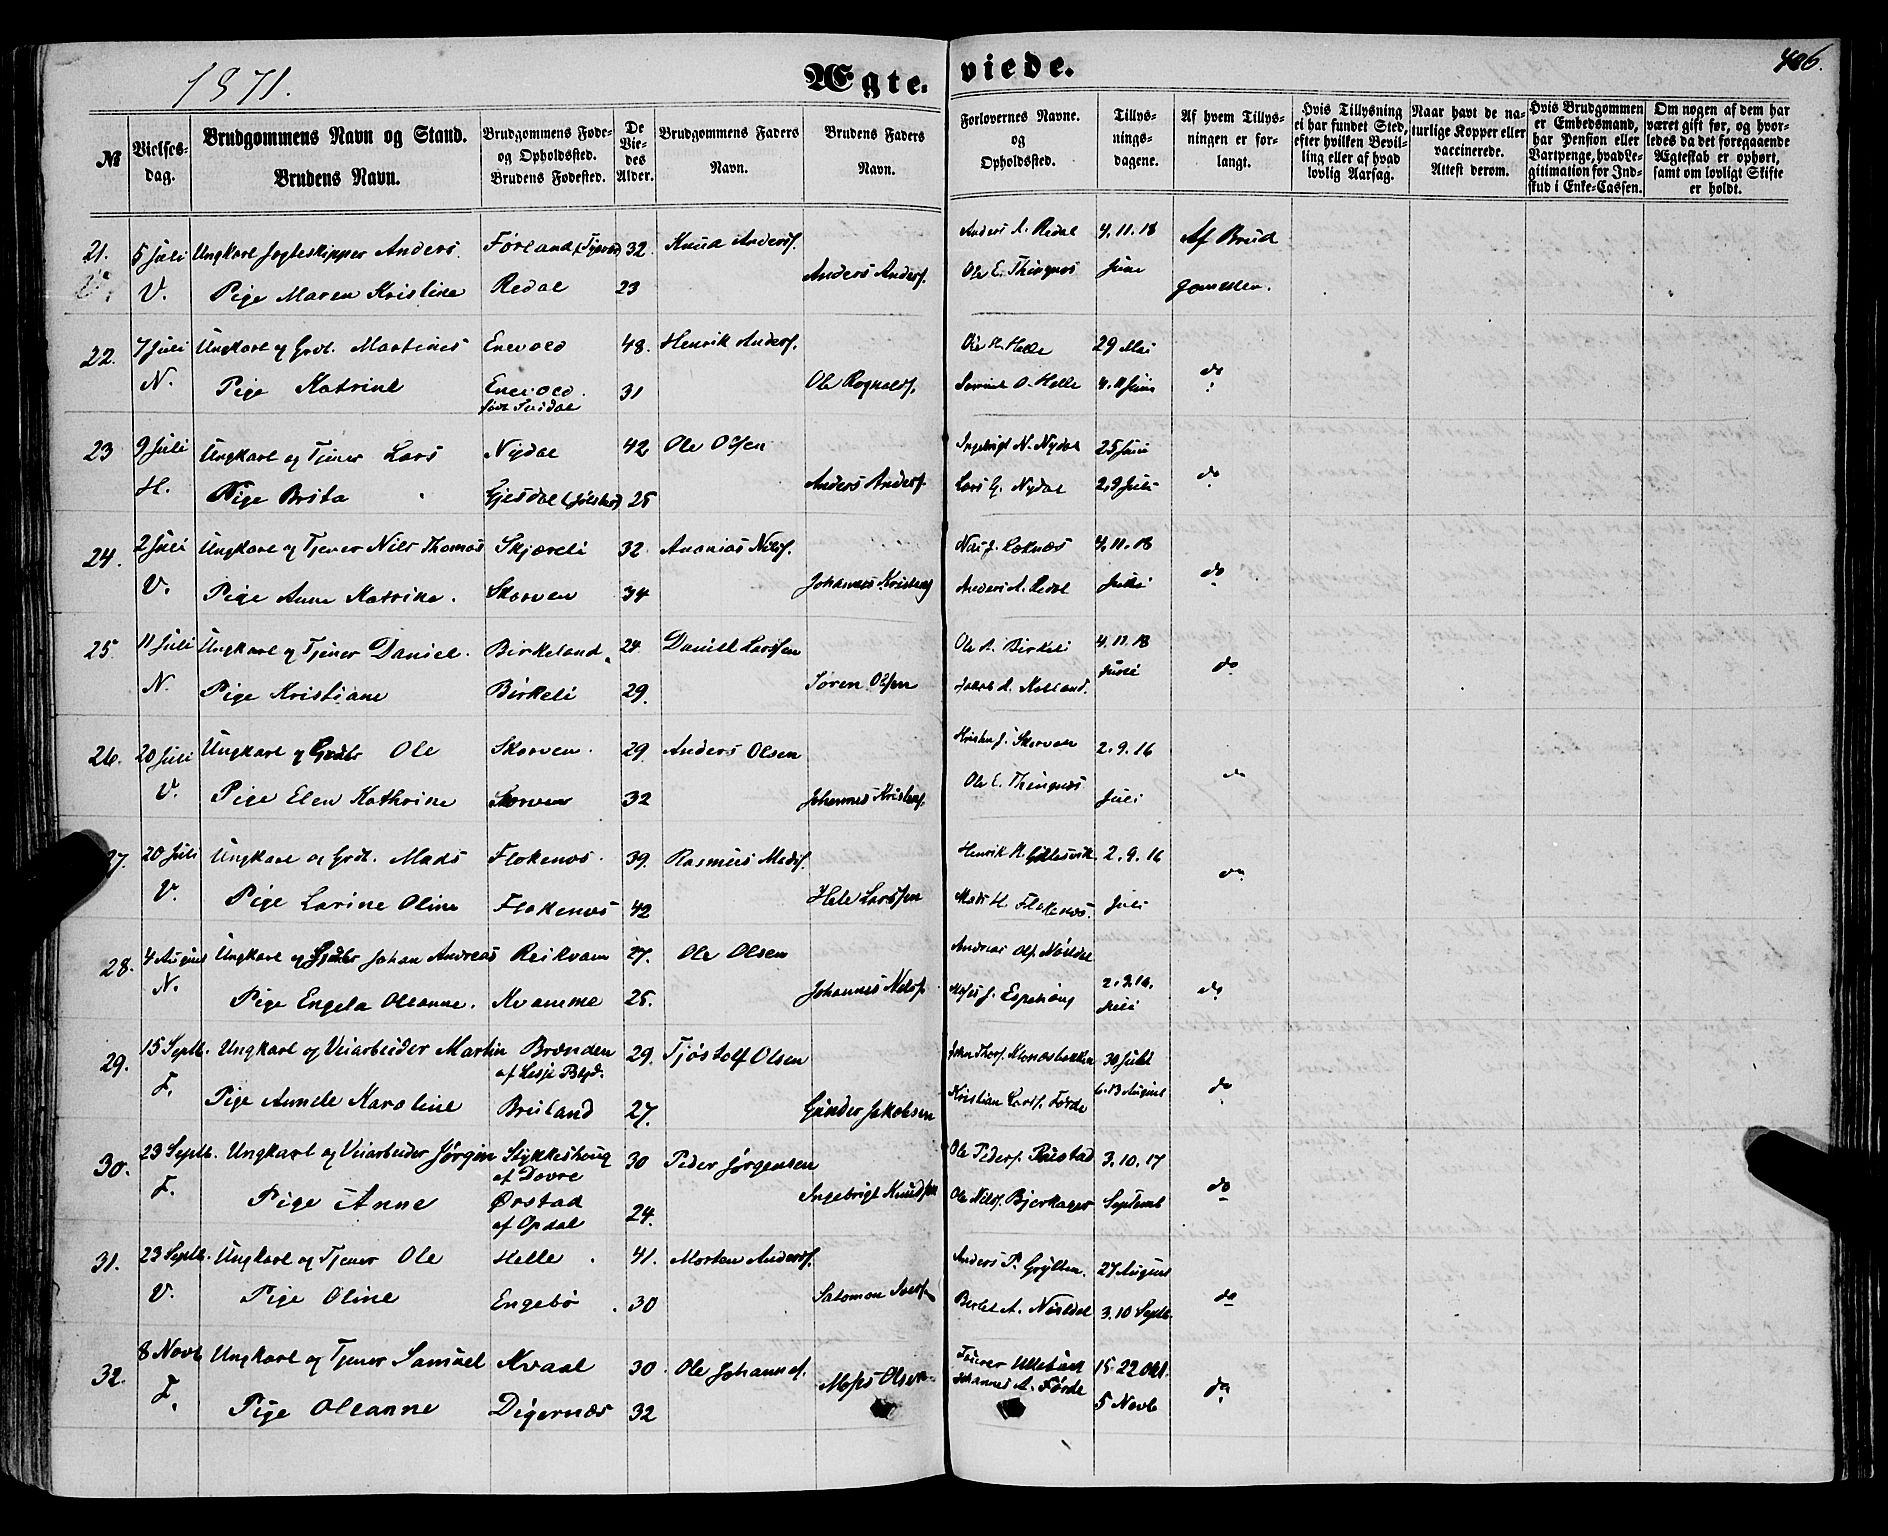 1871.
Ægte- viede.
406.
№
Vielses-dag.
Brudgommens Navn og Stand.
Brudens Navn.
Brudgommens Føde- og Opholdssted.
Brudens Fødested.
De Vie-des Alder.
Brudgommens Faders Navn.
Brudens Faders Navn.
Forlovernes Navne og Opholdssted.
Tillys-nings-dagene.
Af hvem Tillys-ningen er for-langt.
Hvis Tillysning ei har fundet Sted, efter hvilken Bevil-ling eller af hvad lovlig Aarsag.
Naar havt de na-turlige Kopper eller vaccinerede. Attest derom.
Hvis Brudgommen er Embedsmand, har Pension eller Vartpenge, hvad Le-gitimation for Ind-skud i Enke-Cassen.
Om nogen af dem har været gift før, og hvor-ledes da det foregaaende Ægteskab er ophørt, samt om lovligt Skifte er holdt.
21. 5 Juli Ungkarl Jagteskipper Anders Førland 32. Knud Anders. Anders A. Redal 4.11.18 Af Brud
V. Pige Maren Kristine Redal 23 Anders Anders. Ole E. Thingnes Juni gommen.
22. 7 Juli Ungkarl og Grdt. Martines Enevold 48. Henrik Anders. Ole H. Helle 29 Mai do
N. Pige Katrine Enevold 31 Ole Rognalds. O. Helle 4.11 Juni
23 9 Juli Ungkarl og Tjener Lars Nydal 42 Ole Olsen Ingebrigt N. Nydal 25 Juni do
H. Pige Brita Gjesdal (Jølster) 25 Anders Anders. Lars G. Nydal 2.9 Juli
24. 2 Juli Ungkarl og Tjener Nils Thomas Skjæreli 32 Ananias Nils. 4.11.18 do
V. Pige Anne Katrine. Skorven 34 Johannes Anders A. Redal
25 11 Juli Ungkarl og Tjener Daniel Birkeland 24 Daniel Larssen Ole A. Birkeli 4.11.18 do
N. Pige Kristiane Birkeli 29. Søren Olsen Jakob A.
26. 20 Juli Ungkarl og Grdbr Ole Skorven 29 Anders Olsen Skorven 2.9.16 do
V. Pige Elen Kathrine Skorven 32 Johannes Ole E. Thingnes Juli
27. 20 Juli Ungkarl og Grdt. Mads Flokenes 39. Rasmus Mads. Henrik H. 2.9.16 do
V. Pige Larine Oline Flokenes 42 Larssen Mads H. Flokenes. Juli
28. 4 August Ungkarl og Grdbr Johan Andreas Reikvam 27. Ole Olsen Andreas Ols. 2.9.16. do
N. Pige Engela Oleanne. Kvamme 25. Johannes Nils. Juli
29. 15 Septb. Ungkarl og Veiarbeider Martin Brænden 29. Tjøstolf Olsen 30 Juli do
af Lesje
F. Pige Annele Karoline Breiland 27. Gunder Jakobsen Kristian Lars. Førde 6.13 August
30. 23 Septb. Ungkarl og Veiarbeider Jørgen Stykkeshoug 30 Peder Jørgensen Ole Peders. 3.10.17 do
af Dovre
F. Pige Anne Ørstad 24. Ingebrigt Knudsen Ole Nils. Bjerkager Septemb
af Opdal
31. 23 Septb. Ungkarl og Tjener Ole Helle 41. Morten Anders. Anders P. 27 August do
V. Pige Oline Engebø 30 Salomon A. 3.10 Septb.
32. 8 Novb Ungkarl og Tjener Samuel Kvaal 30. Ole Johannes. 15.22 Okt. do
F. Pige Oleanne Digernæs 32 Olsen Johannes A. Førde 5 Novb